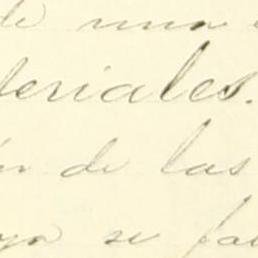 de una
teriales.
ón de las
ya se fa